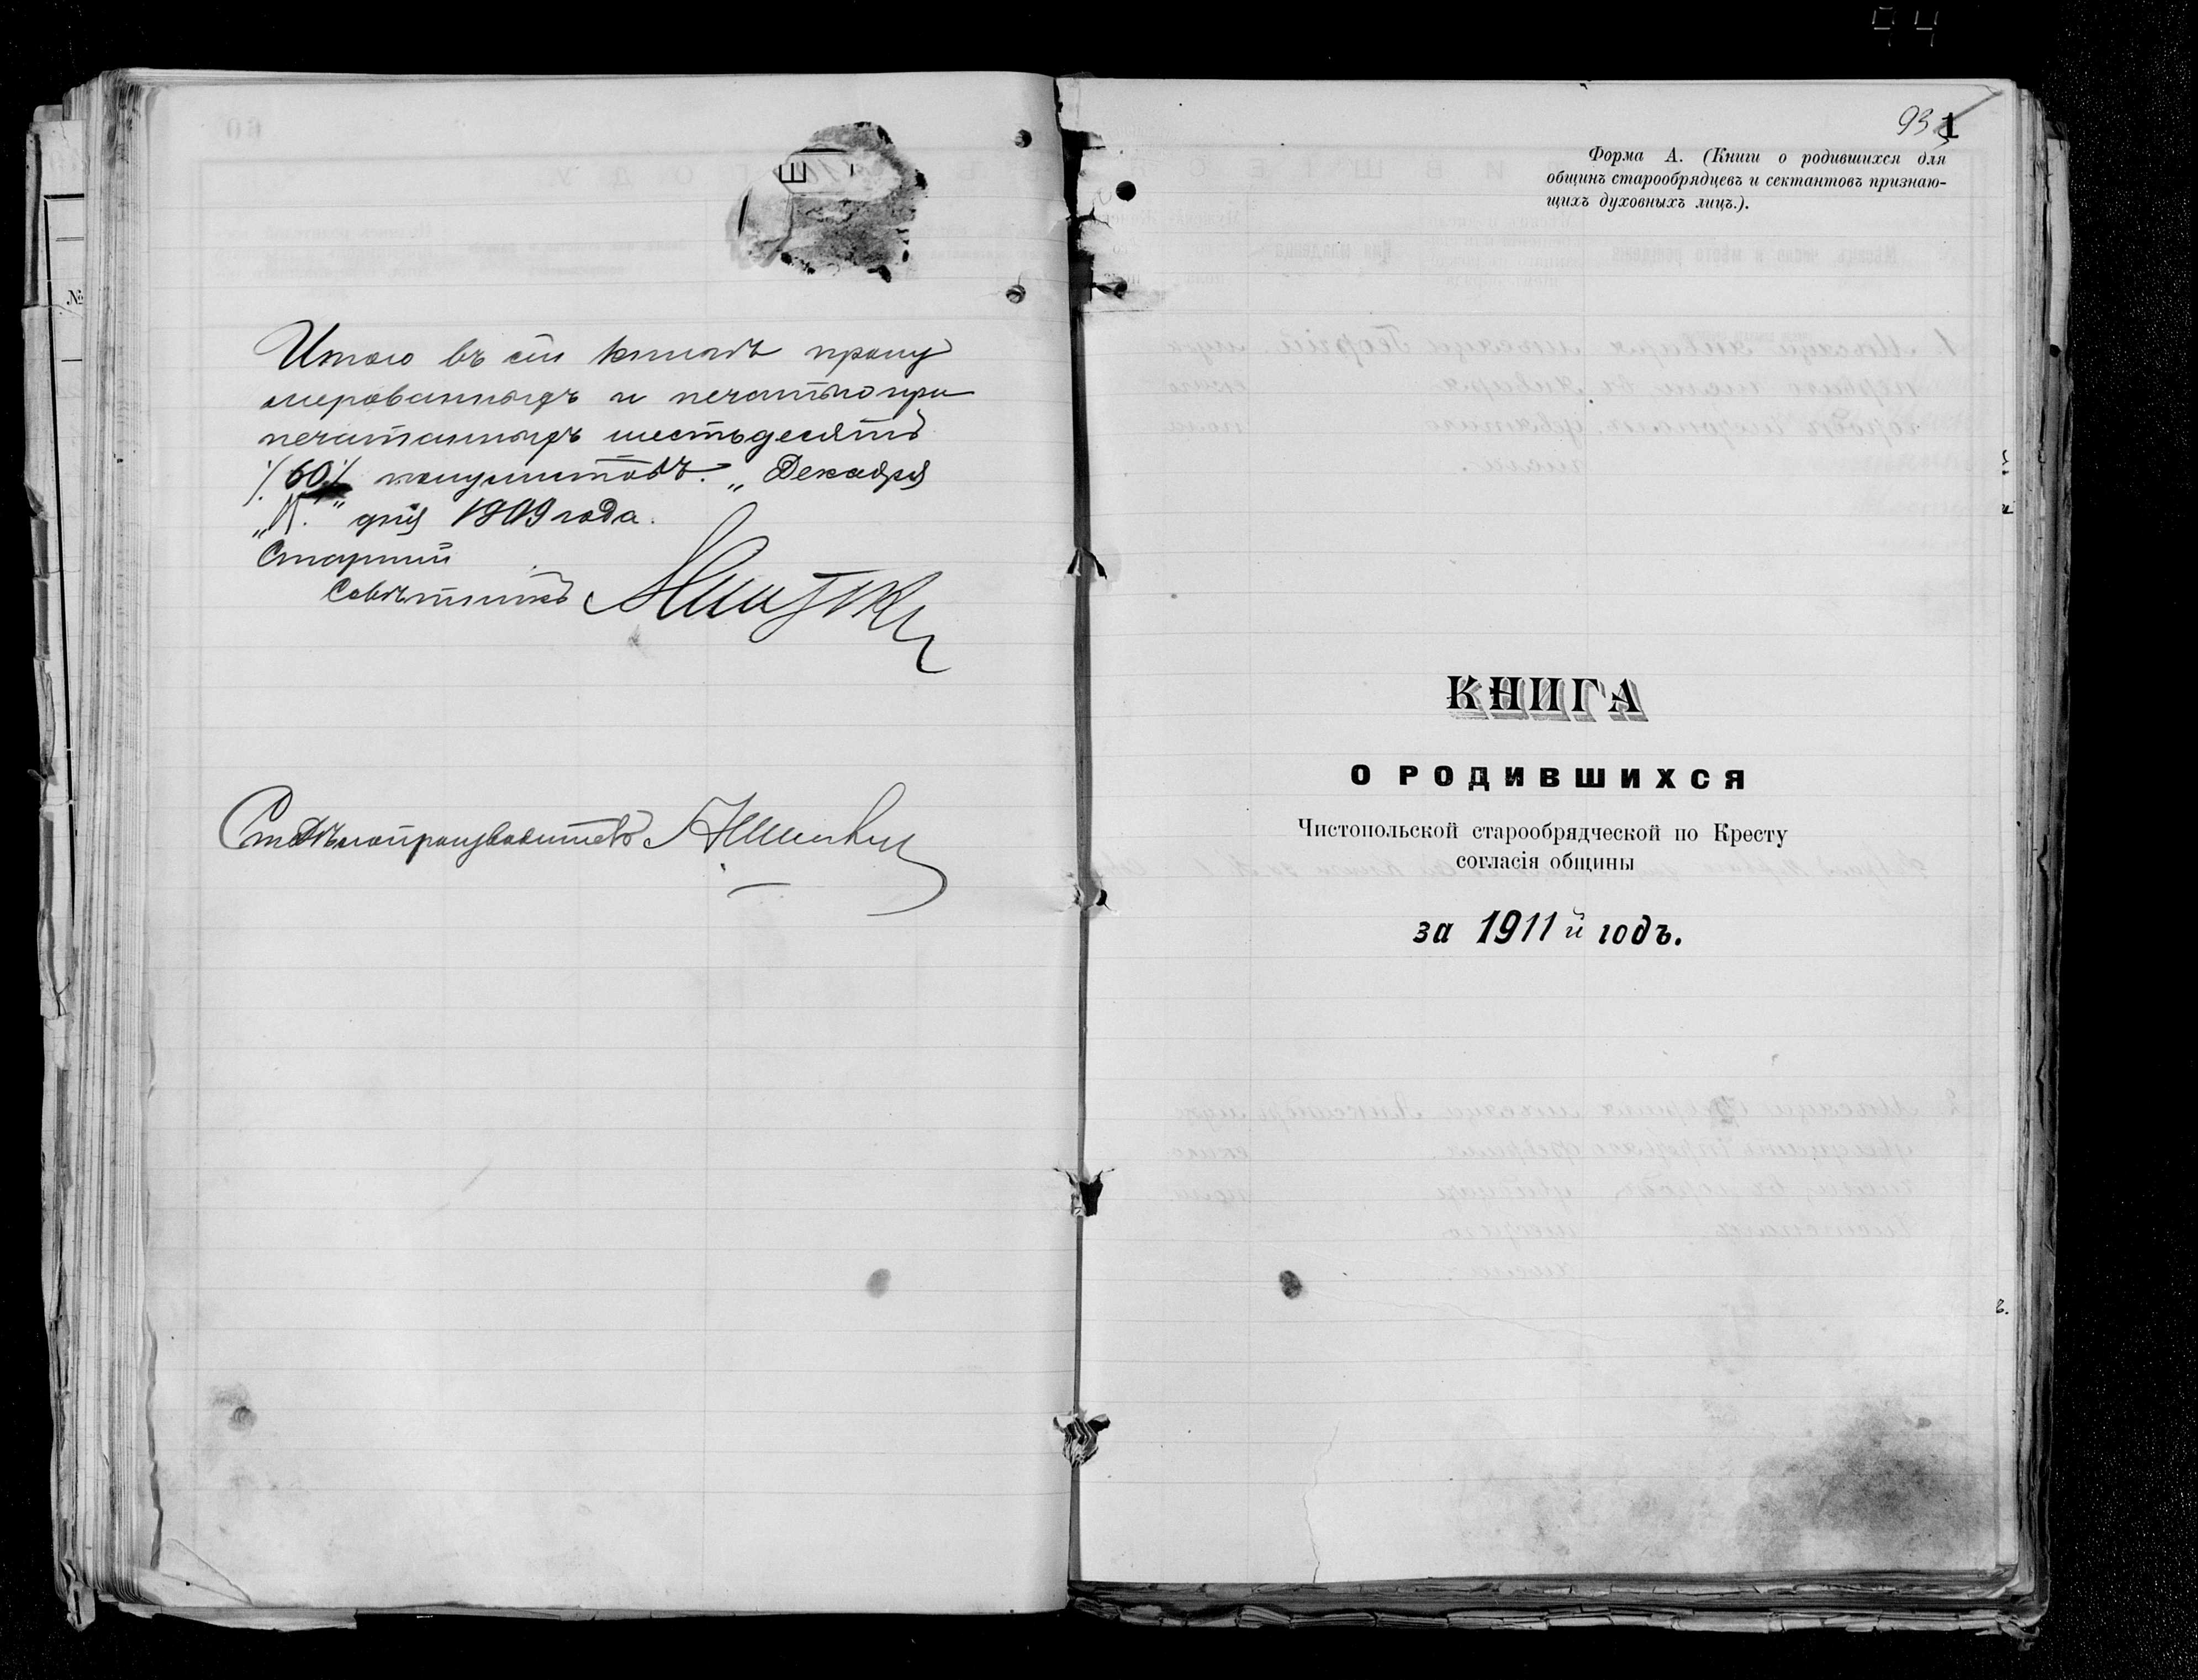 Итого въ сей книгѣ прону
мерованныхъ и печатью при
печатанныхъ шестьдесятъ
/.60./ полулистовъ. „ Декабря
дня 1909 года.
Старшій
Совѣтникъ
Дѣлопроизводитель
93 1
Форма А. (Книги о родившихся для
общинъ старообрядцевъ и сектантовъ признаю-
щихъ духовныхъ лицъ.).
КНИГА
О РОДИВШИХСЯ
Чистопольской старообрядческой по Кресту
согласія общины
за 1911 й годъ.